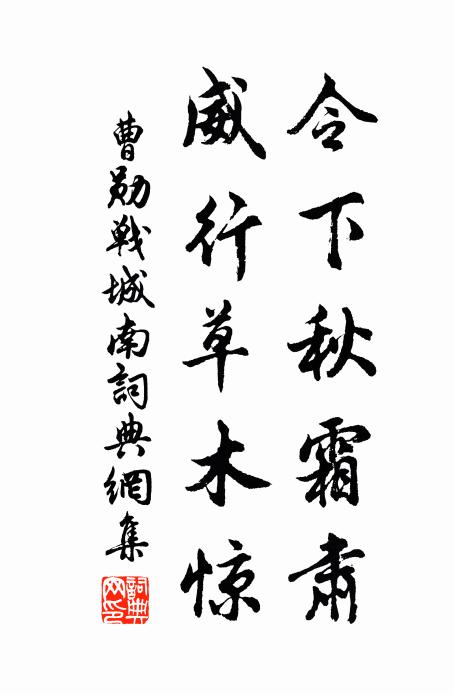 令下秋霜肃
威行草木惊
曹勋战城南詞典網集
詞典
网印